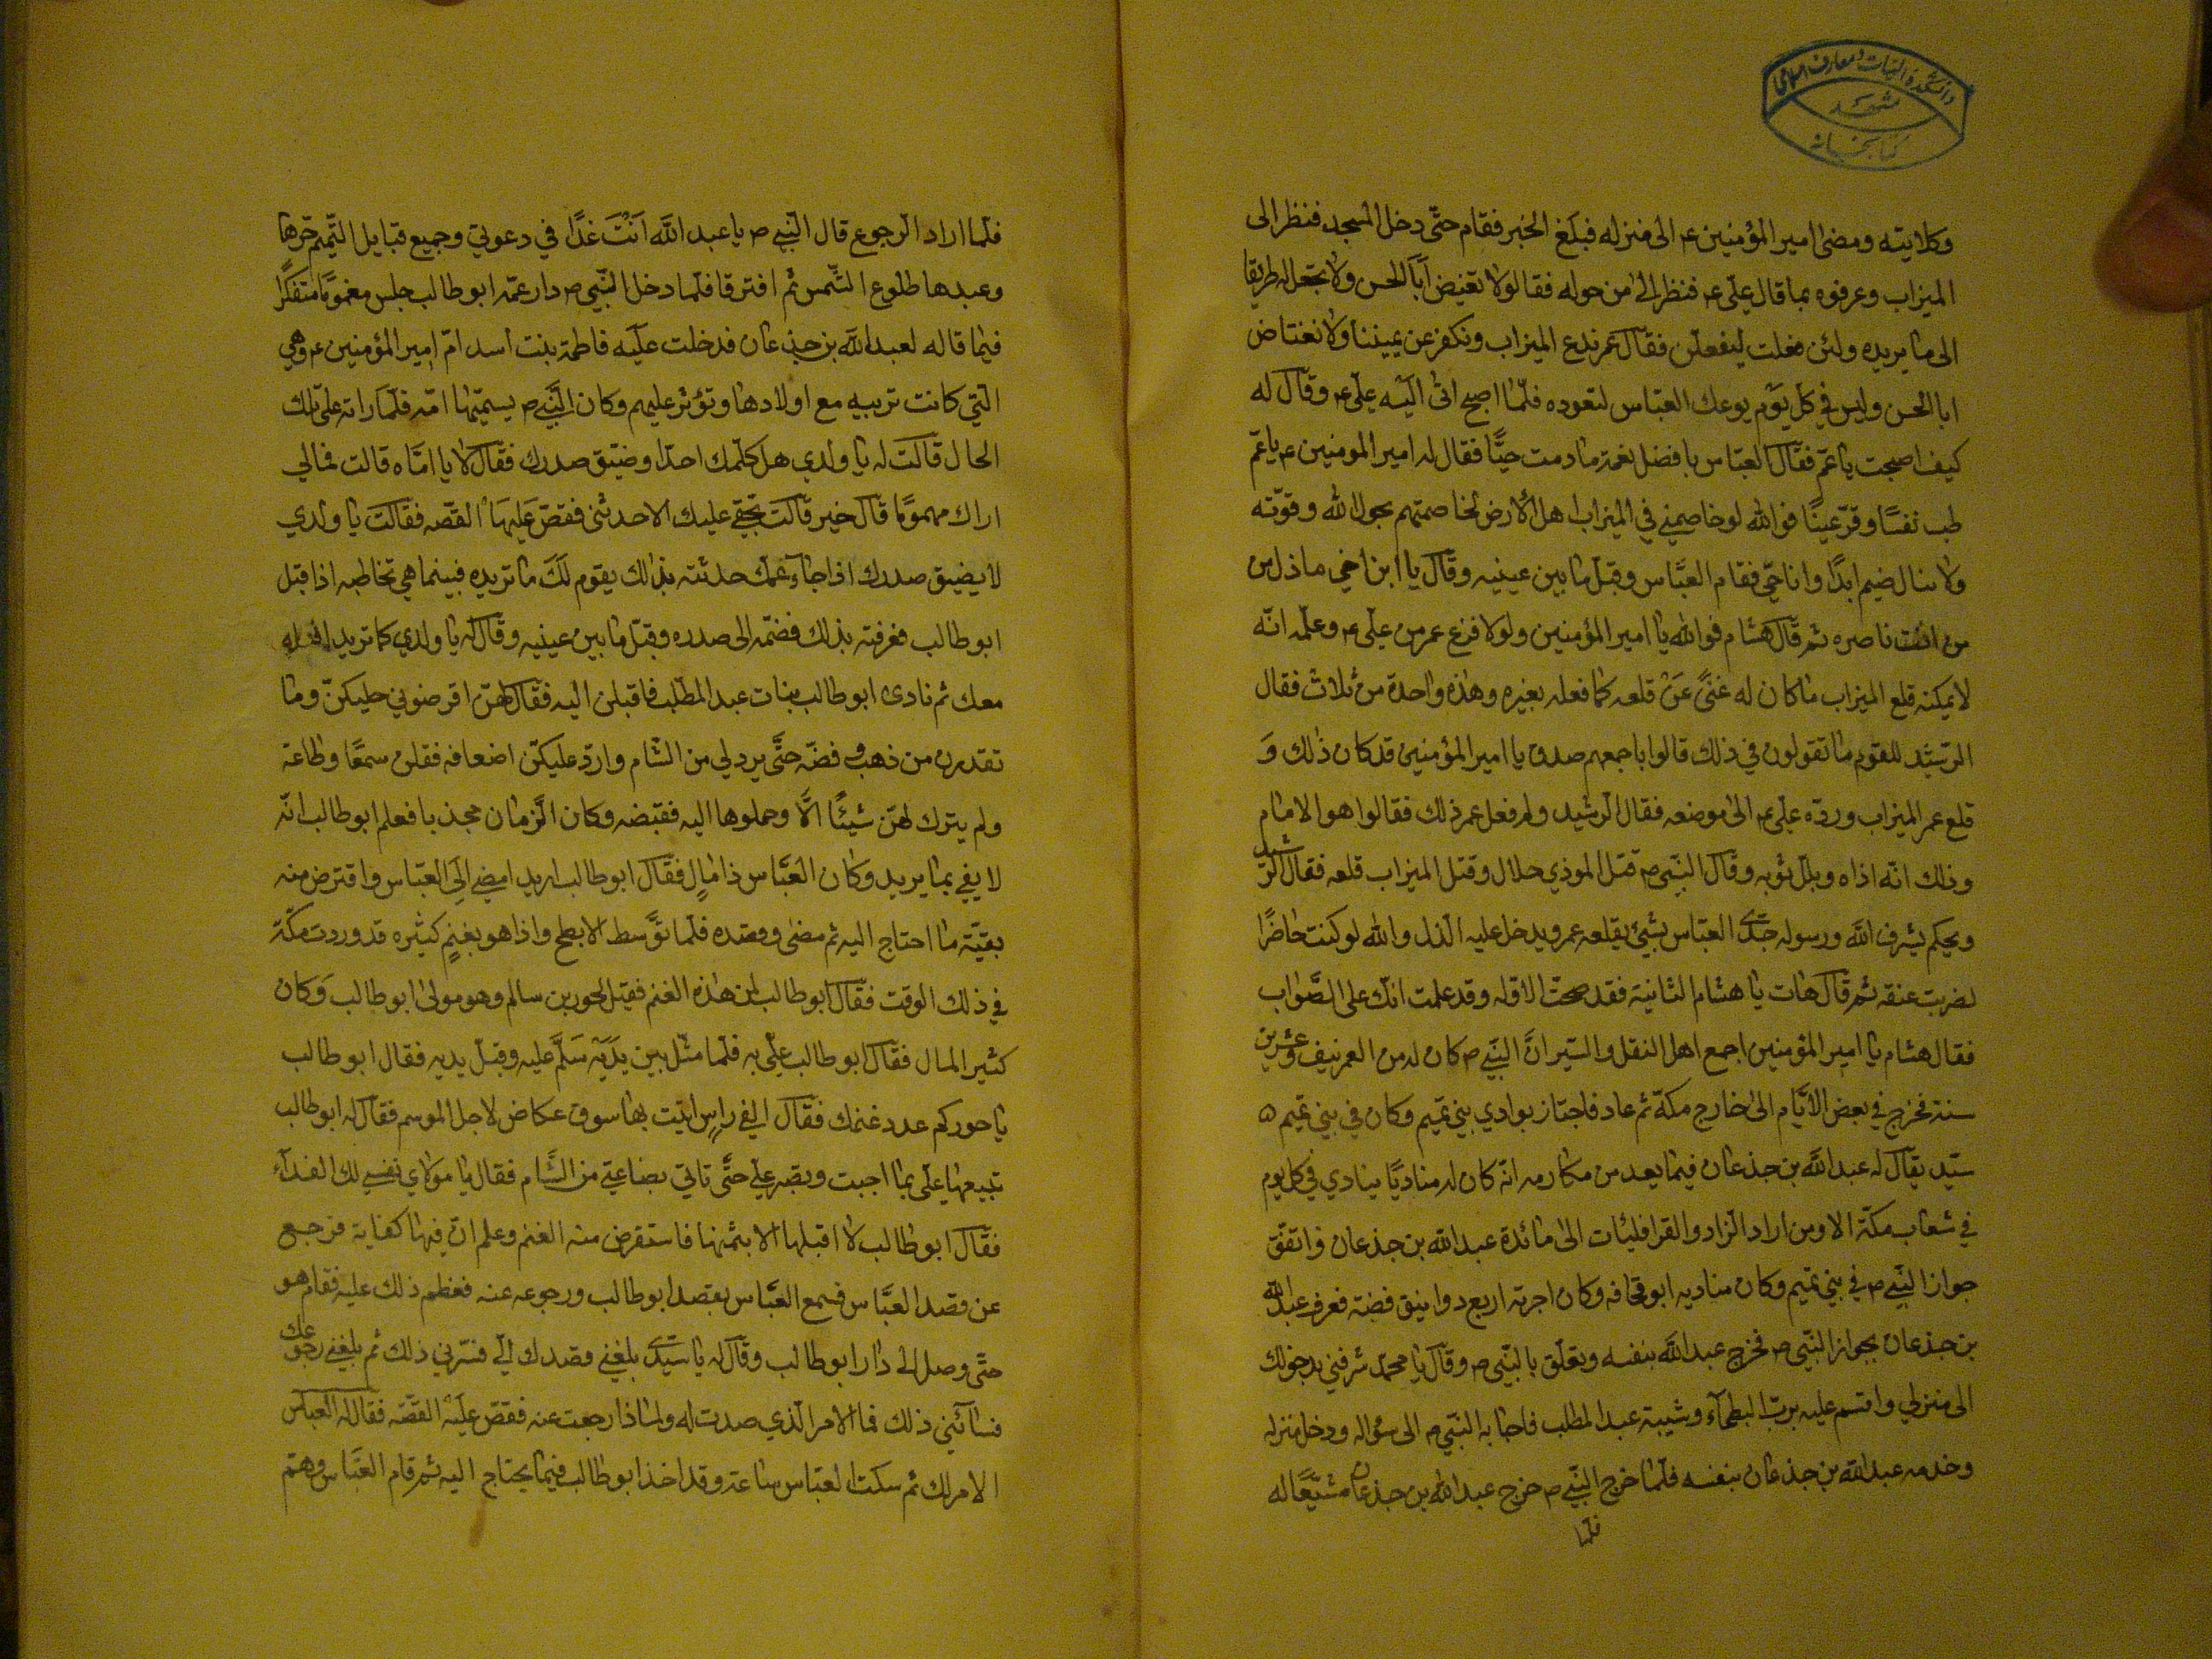 دانشکده الهیات و معارف اسلامی
مشهد
کتابخانه
وكلايته ومضى امير المؤمنين ع الى منزله فبلغ الخبر فقام حتّى دخل المسجد فنظر الى
الميزاب وعرفوه بما قال علي ع فنظر الى من حوله فقالوا لا تغيض ابا الحسن ولا تجعل له طريقا
الى ما يريده ولئن فعلت ليفعلن فقال عمر ندع الميزاب ونكفر عن يميننا ولا نغتاض
ابا الحسن وليس في كل يوم يوعك العبّاس لتعوده فلمّا اصبح اتى اليه علي ع وقال له
كيف اصبحت يا عمّ فقال العبّاس بافضل نعمة ما دمت حيًّا فقال له امير المومنين ع يا عمّ
طب نفسًا وقرّ عينًا فوالله لو خاصمني في الميزاب اهل الأرض لخاصمتهم بحول الله وقوّته
ولا ينال ضيم ابدًا وانا حيّ فقام العبّاس وقبّل ما بين عينيه وقال يا ابن اخي ما ذل من
من انت ناصره ثم قال هشام فوالله يا امير المؤمنين ولولا فزع عمر من علي ع وعلمه انّه
لا يمكنه قلع الميزاب ما كان له غنىً عن قلعه كما فعله بغيره وهذه واحدة من ثلاث فقال
الرشيد للقوم ما تقولون في ذلك قالوا باجمعهم صدق يا امير المؤمنين قد كان ذلك وَ
قلع عمر الميزاب وردّه علي ع الى موضعه فقال الرشيد ولم فعل عمر ذلك فقالوا هو الامام
وذلك انّه اذاه وبلل ثوبه وقال النبّي ص قتل الموذي حلال وقتل الميزاب قلعه فقال الرّشيد
ويحكم يشرف الله ورسوله جدّي العبّاس بشئ يقلعه عمر ويدخل عليه الذل والله لو كنت حاضرًا
لضربت عنقه ثم قال هات يا هشام الثانية فقد صحّت الاوله وقد علمت انك على الصّواب
فقال هشام يا امير المؤمنين اجمع اهل النقل والسير انَّ النبّي ص كان له من العمر نيف وعشرين
سنة فخرج في بعض الايّام الى خارج مكّة ثم عاد فاجتاز بوادي بني تميم وكان في بني تميم
سيّد يقال له عبد الله بن جذعان فيما يعد من مكارمه انّه كان له مناديًا ينادي في كل يوم
في شعاب مكّة الا ومن اراد الزاد والقرا فليئات الى مائدة عبد الله بن جذعان واتفق
جواز النبّي ص في بني تميم وكان مناديه ابو قحافه وكان اجرته اربع دوانيق فضة فعرف عبد الله
بن جذعان بجواز النبّي ص فخرج عبد الله بنفسه وتعلّق بالنبّي ص وقال يا محمد شرفني بدخولك
الى منزلي واقتسم عليه بربّ البطحآء وشيبة عبد المطلب فاجابه النبّي ص الى سؤاله ودخل منزله
وخدمه عبد الله بن جذعان بنفسه فلمّا خرج النبّي ص خرج عبد الله بن جذعان مشيّعًا له
فلمّا
فلمّا اراد الرجوع قال النبّي ص يا عبد الله اَنْتَ غدًا في دعوتي وجميع قبايل التّميم حرّها
وعبدها طلوع الشّمس ثم افترقا فلمّا دخل النبّي ص دار عمّه ابو طالب جلس مغمومًا متفكّرًا
فيما قاله لعبد الله بن جذعان فدخلت عليه فاطمة بنت اسد امّ امير المؤمنين ع وهي
الّتي كانت تربيه مع اولادها وتؤثر عليهم وكان النبّي ص يسمّيها امّه فلمّا راته على تلك
الحال قالت له يا ولدي هل كلّمك احدًا وضيّق صدرك فقال لا يا امّاه قالت فمالي
اراك مهمومًا قال خير قالت بحقّي عليك الا حدثتني فقصّ عليها القصّه فقالت يا ولدي
لا يضيق صدرك اذا جآء عمّك حدثته بذلك يقوم لك ما تريده فبينما هي تخاطبه اذ اقبل
ابو طالب فعرفته بذلك فضمّه الى صدره وقبّل ما بين عينيه وقال له يا ولدي كما تريد افعله
معك ثم نادى ابو طالب بنات عبد المطّلب فاقبلن اليه فقال لهنّ اقرضوني حليكنّ وما
تقدرن من ذهب وفضّه حتّى يرد لي من الشّام واردّ عليكنّ اضعافه فقلن سمعًا وطاعة
ولم يترك لهنّ شيئًا الَّا وحملوها اليه فقبّضه وكان الزّمان مجذبا فعلم ابو طالب انّه
لا يفي بما يريد وكان العبَّاس ذا مالٍ فقال ابو طالب اريد امضي الى العبّاس واقترض منه
بقيّة ما احتاج اليه ثم مضى وقصده فلمّا توَّسط الابطح واذا هو بغنمٍ كثيره قد وردت مكّة
في ذلك الوقت فقال ابو طالب لمن هذه الغنم فقيل لحور بن سالم وهو مولى ابو طالب وكان
كثير المال فقال ابو طالب عليّ به فلمّا مثّل بين يديه سلّم عليه وقبّل يديه فقال ابو طالب
يا حور كم عدد غنمك فقال الفي راسٍ اتيت بها سوق عكاض لاجل الموسم فقال له ابو طالب
تبيعها علي بما احببت وتصبر علي حتّى تاتي بضاعتي من الشّام فقال يا مولاي نفسي لك الفدآء
فقال ابو طالب لا اقبلها الا بثمنها فاستقرض منه الغنم وعلم انّ فيها كفاية فرجع
عن قصد العبّاس فسمع العبّاس بقصد ابو طالب ورجوعه عنه فعظم ذلك عليه فقام هو
حتّى وصل الى دار ابو طالب وقال له يا سيّدي بلغني قصدك لي فسّرني ذلك ثم بلغني رجوعك
فسائني ذلك فما الامر الّذي صدت له ولماذا رجعت عنه فقصّ عليه القصّه فقال له العبّاس
الامر لك ثم سكت العبّاس ساعة وقد اخذ ابو طالب فيما يحتاج اليه ثم قام العبّاس وهمّ